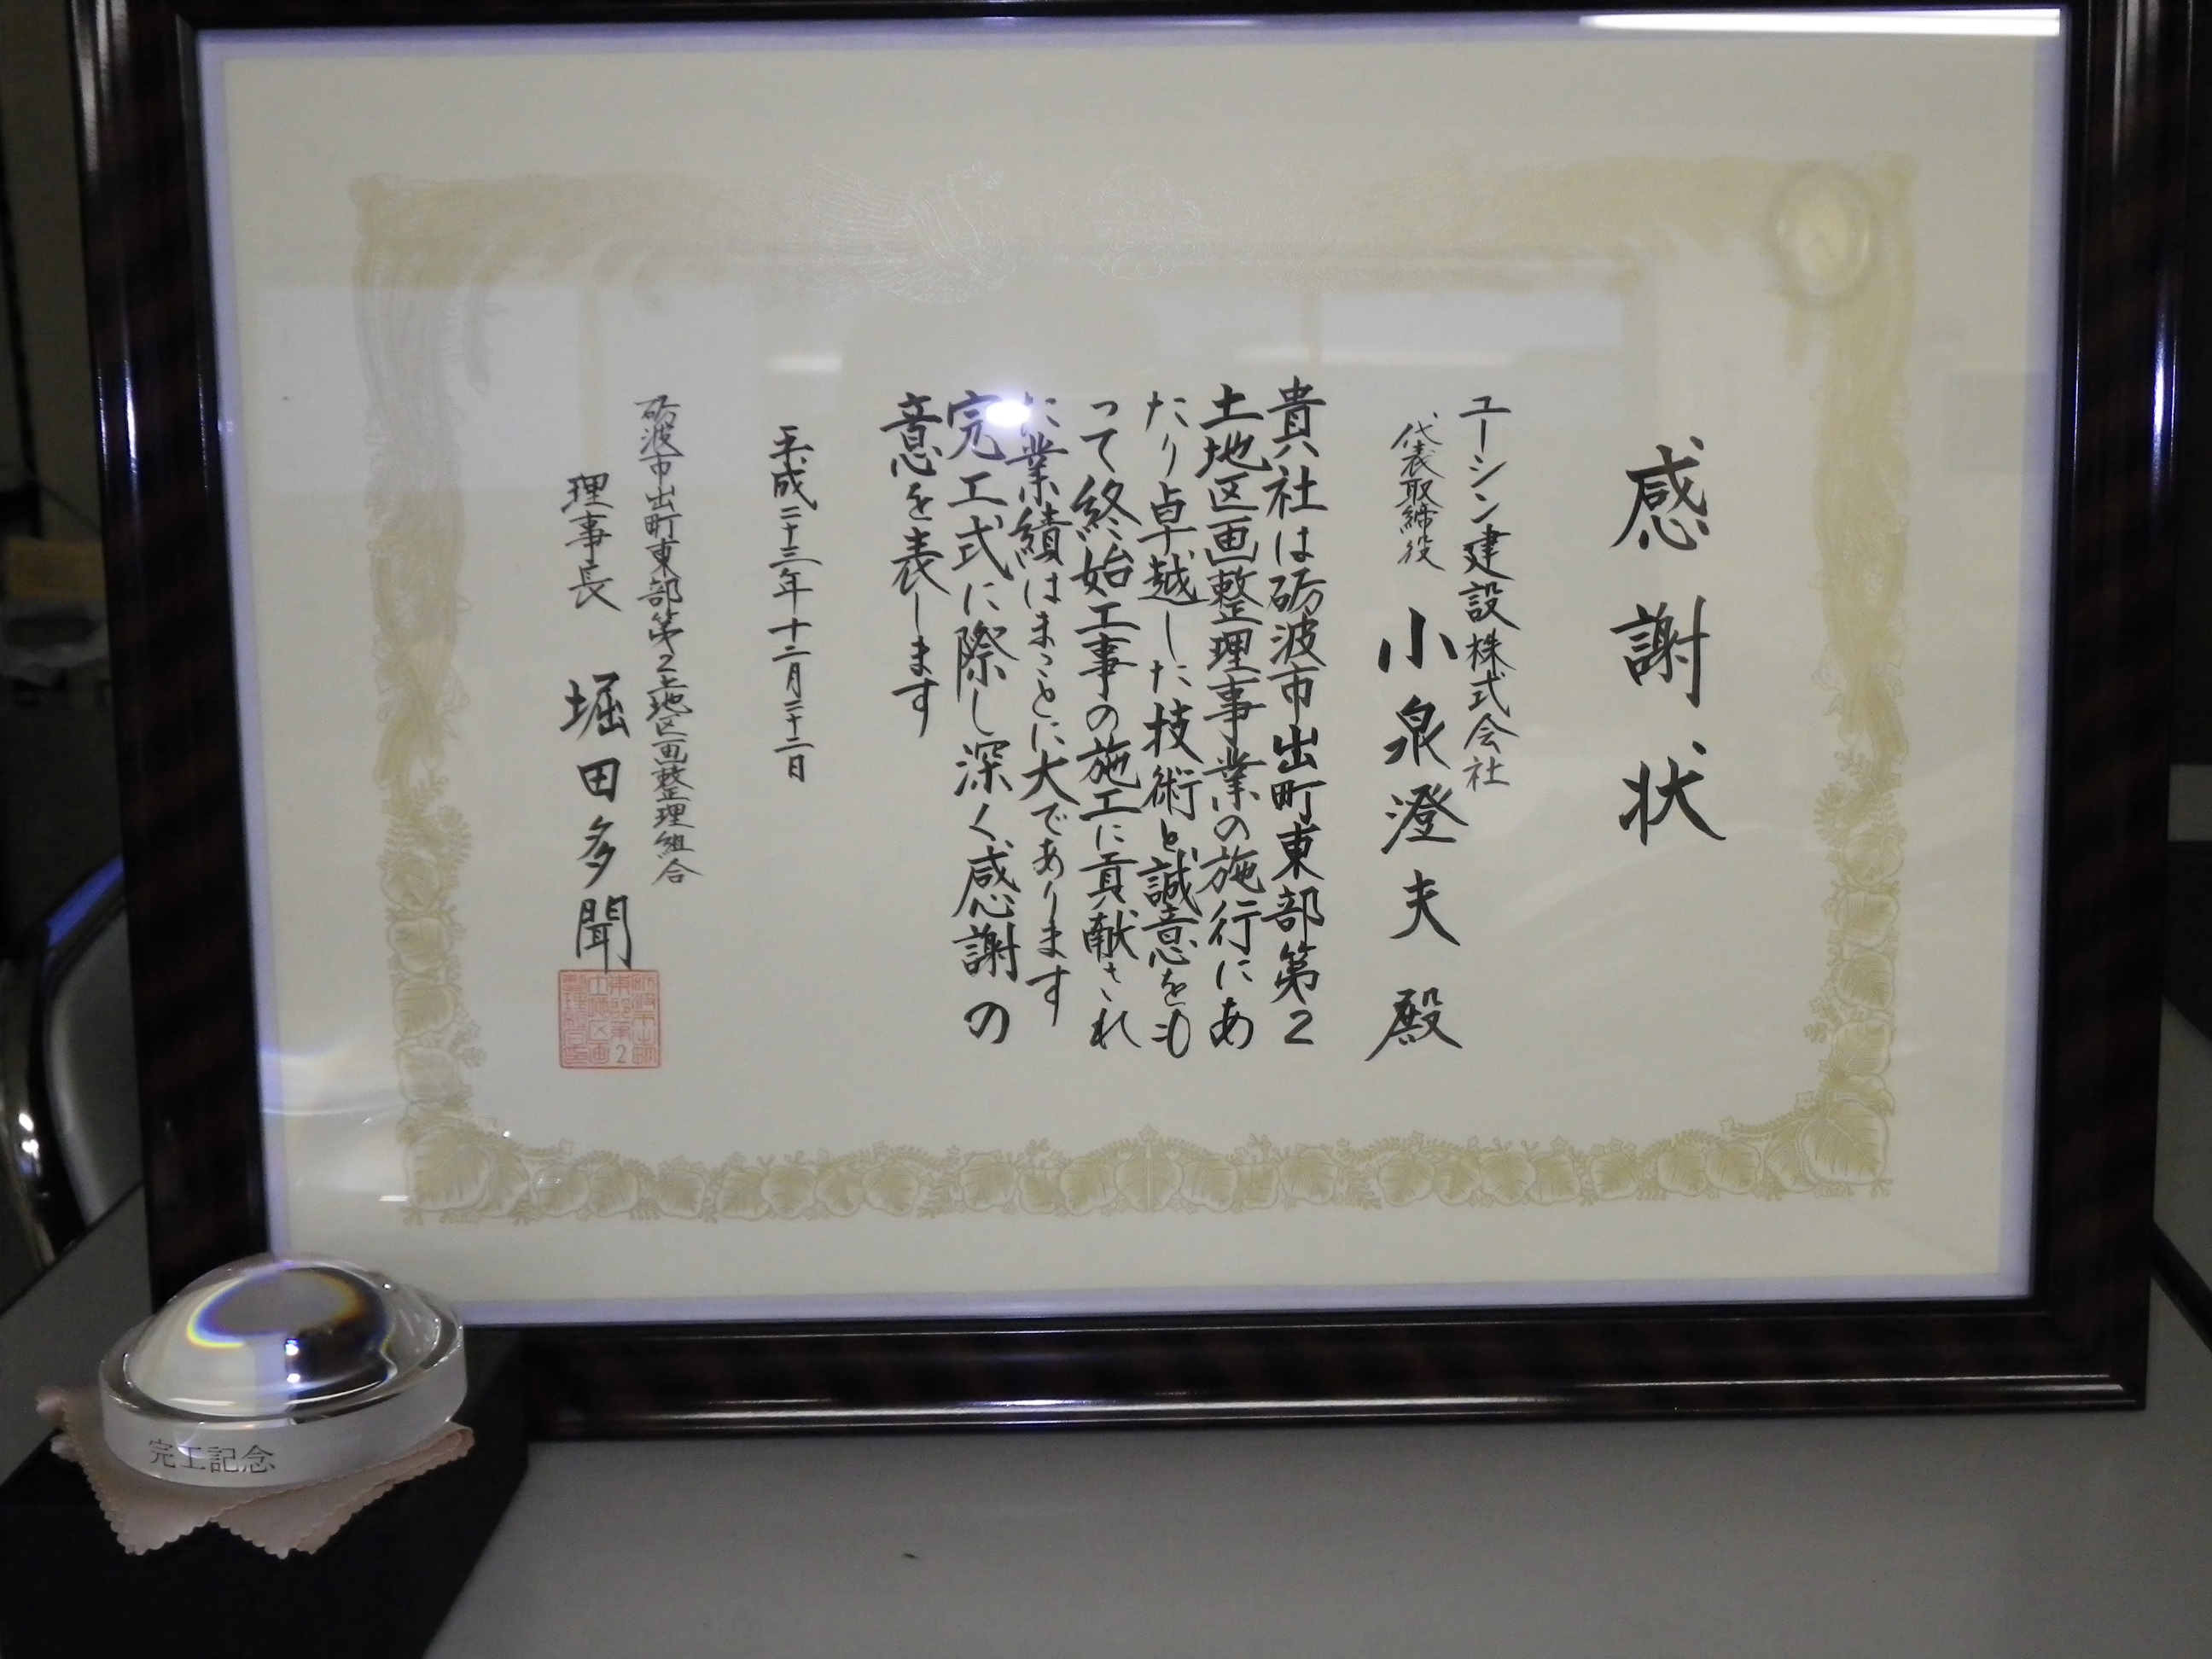 感謝状
ユーシン建設株式会社
代表取締役 小泉澄夫 殿
貴社は砺波市出町東部第2
土地区画整理事業の施行にあ
たり卓越した技術と誠意をも
って終始工事の施工に貢献され
た業績はまことに大であります
完工式に際し深く感謝の
意を表します
平成二十三年十二月二十二日
砺波市出町東部第2土地区画整理組合
理事長 堀田多聞
完工記念